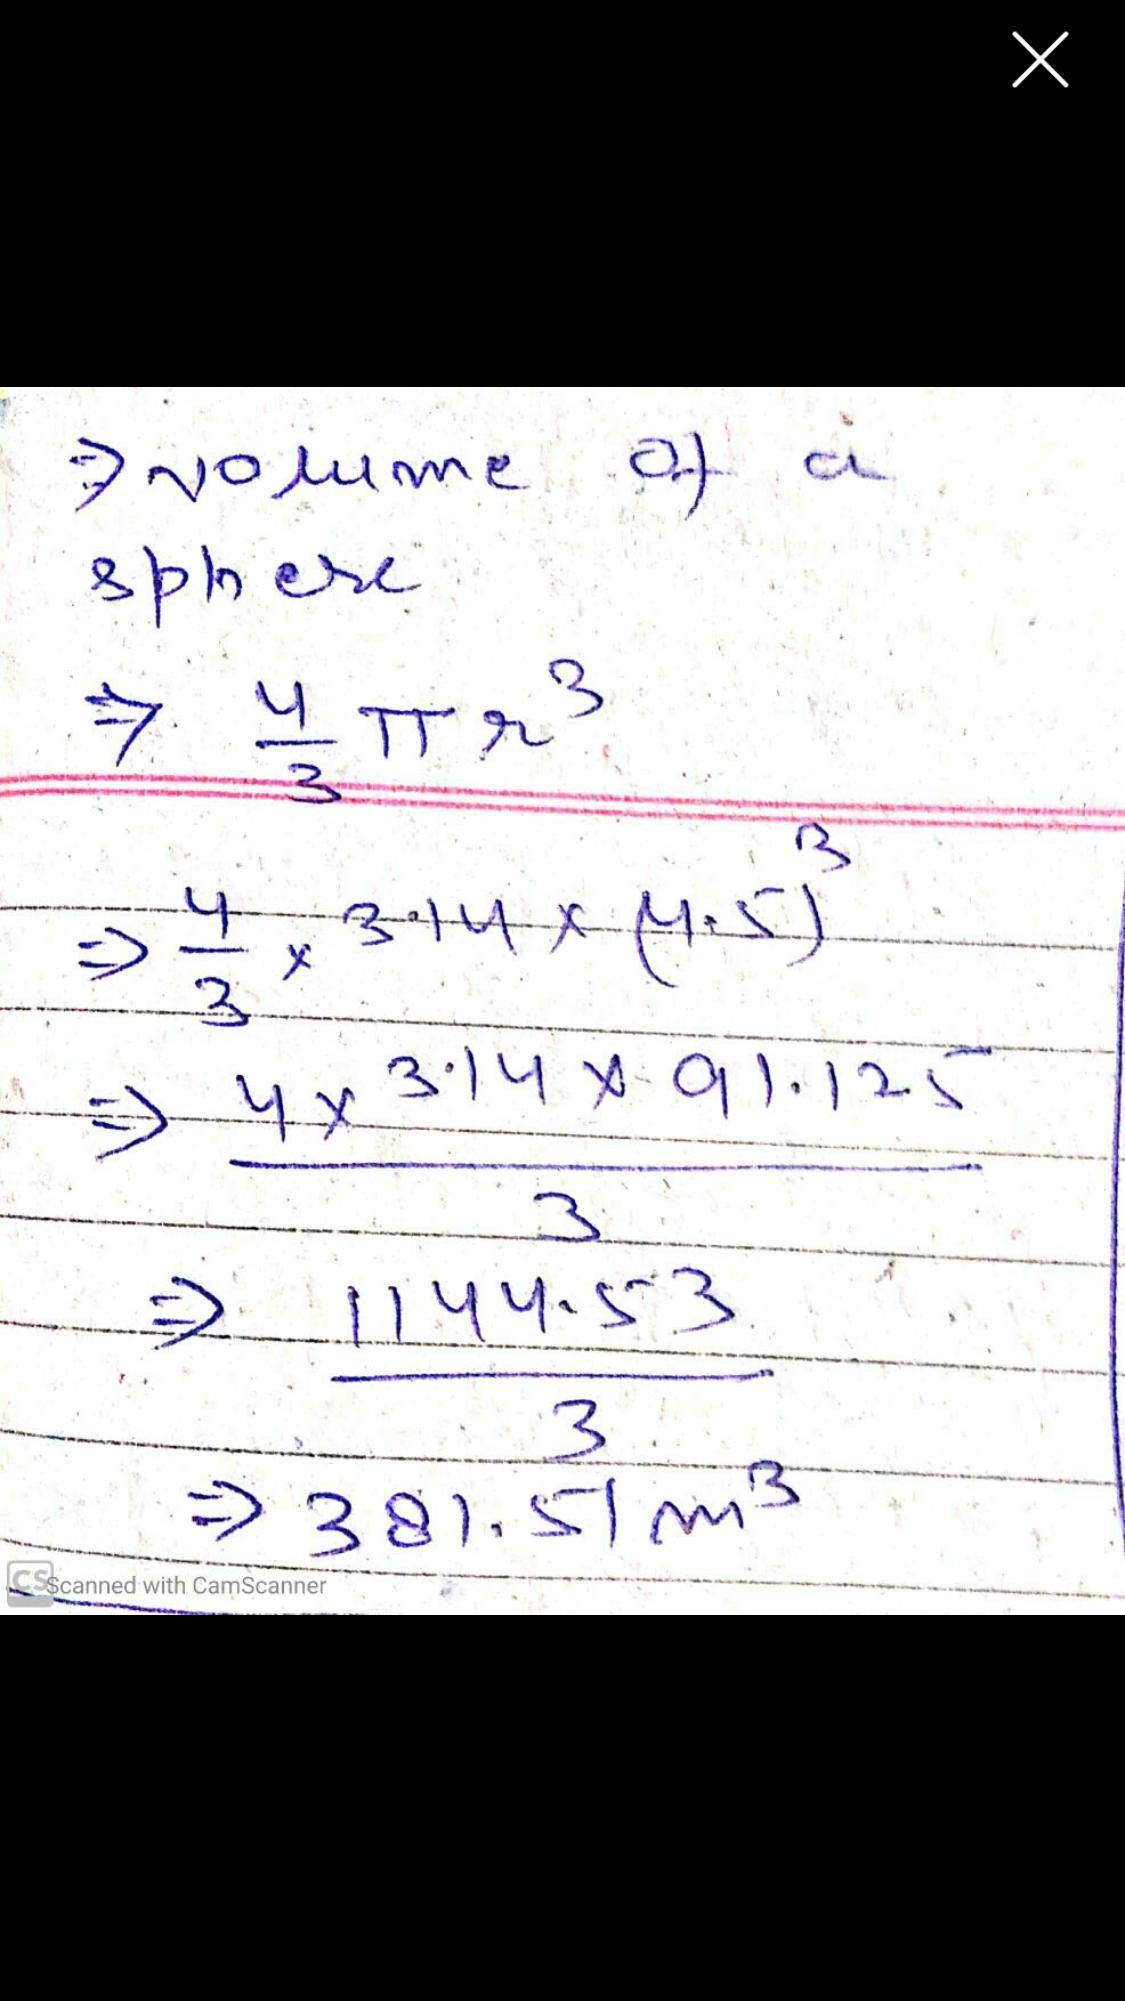 ⇒ volume of a
sphere
⇒ 4/3 π r³
⇒ 4/3 × 3.14 × (4.5)³
⇒ 4 × 3.14 × 91.125 / 3
⇒ 1144.53 / 3
⇒ 381.51 m³
CS Scanned with CamScanner